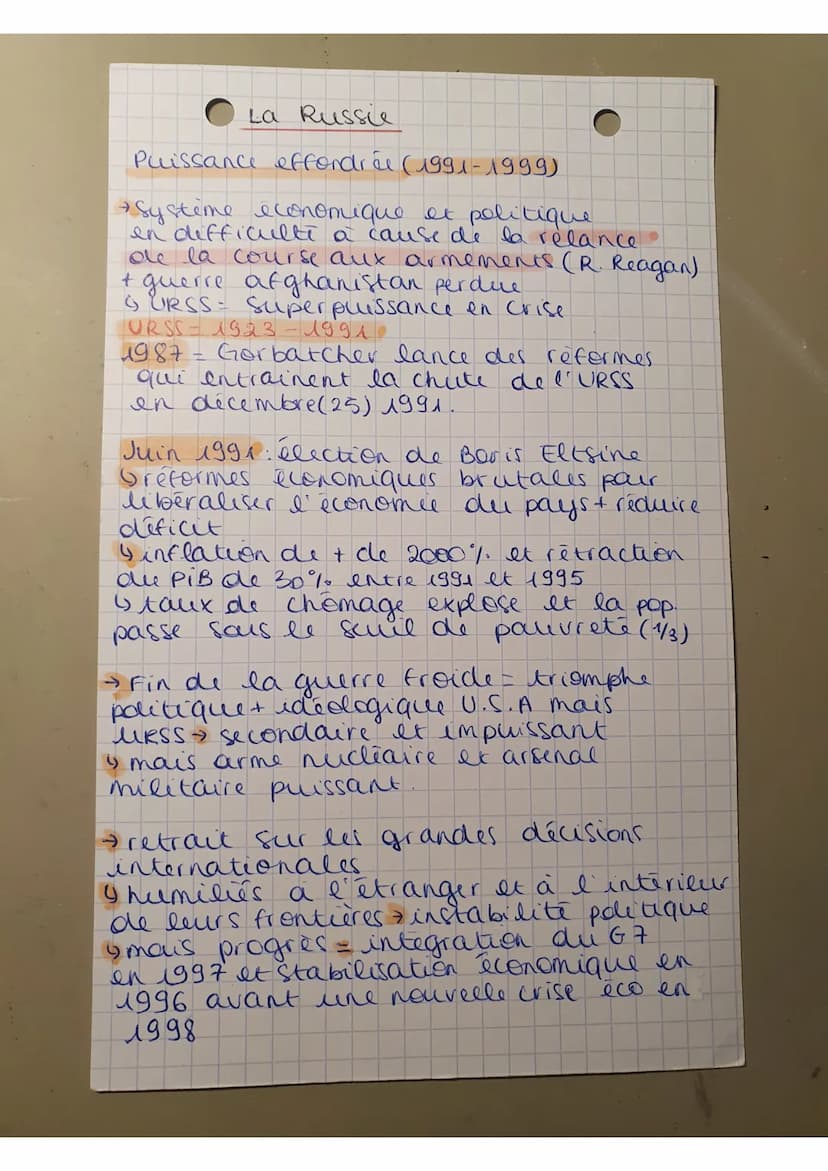 La Russie
Puissance effondrée (1991-1999)
→ Système économique et politique
en difficulté à cause de la relance
de la course aux armements (R. Reagan)
+ guerre afghanistan perdue
↳ URSS = superpuissance en crise
URSS = 1923 - 1991
1987 = Gorbatchev lance des réformes
qui entrainent la chute de l'URSS
en décembre (25) 1991.
Juin 1991 : élection de Boris Eltsine
↳ réformes économiques brutales pour
libéraliser l'économie du pays + réduire
déficit
↳ inflation de + de 2000% et rétraction
du PIB de 30% entre 1991 et 1995
↳ taux de chômage explose et la pop.
passe sous le seuil de pauvreté (1/3)
→ Fin de la guerre froide = triomphe
politique + idéologique U.S.A mais
URSS → secondaire et impuissant
↳ mais arme nucléaire et arsenal
militaire puissant.
→ retrait sur les grandes décisions
internationales
↳ humiliés à l'étranger et à l'intérieur
de leurs frontières → instabilité politique
↳ mais progrès = intégration du G7
en 1997 et stabilisation économique en
1996 avant une nouvelle crise éco en
1998